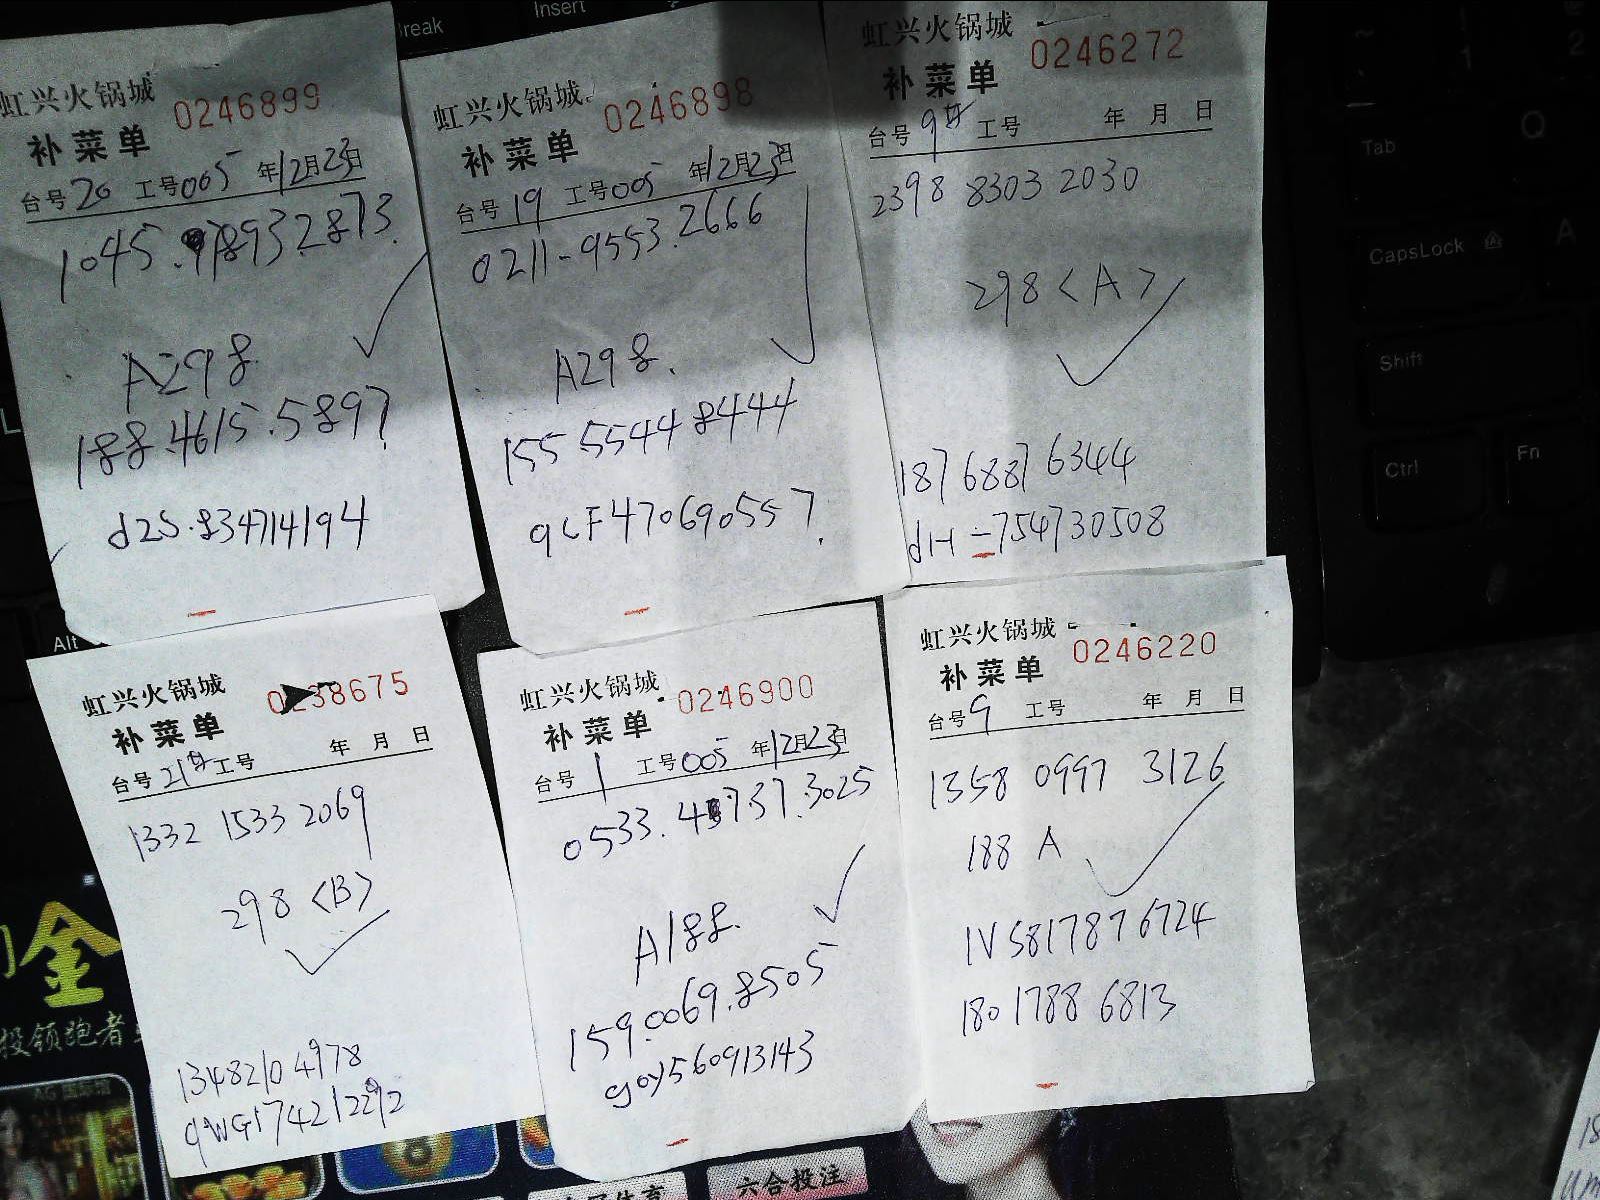 虹兴火锅城
0246899
补菜单
台号20 工号005 年12月23日
A298
188.4615.5897
d2S.834714194
虹兴火锅城
0246898
补菜单
台号19 工号005 年12月23日
0211-9553.2666
A298.
155.55448444
qCF470690557.
虹兴火锅城
0246272
补菜单
台号9 工号 年 月 日
2398 8303 2030
298<A>
187 6887 6344
dH-754730508
虹兴火锅城
38675
补菜单
台号21 工号 年 月 日
1332 1533 2069
298<B>
13482104978
虹兴火锅城
0246900
补菜单
台号1 工号005 年12月23日
A188.
159.0069.8505
goy560913143
虹兴火锅城
0246220
补菜单
台号9 工号 年 月 日
1358 0997 3126
188 A
1V5817876724
180 1788 6813
reak
Insert
Tab
Q
CapsLock
A
Shift
Ctrl
Fn
Alt
金
投领跑者
六合投注